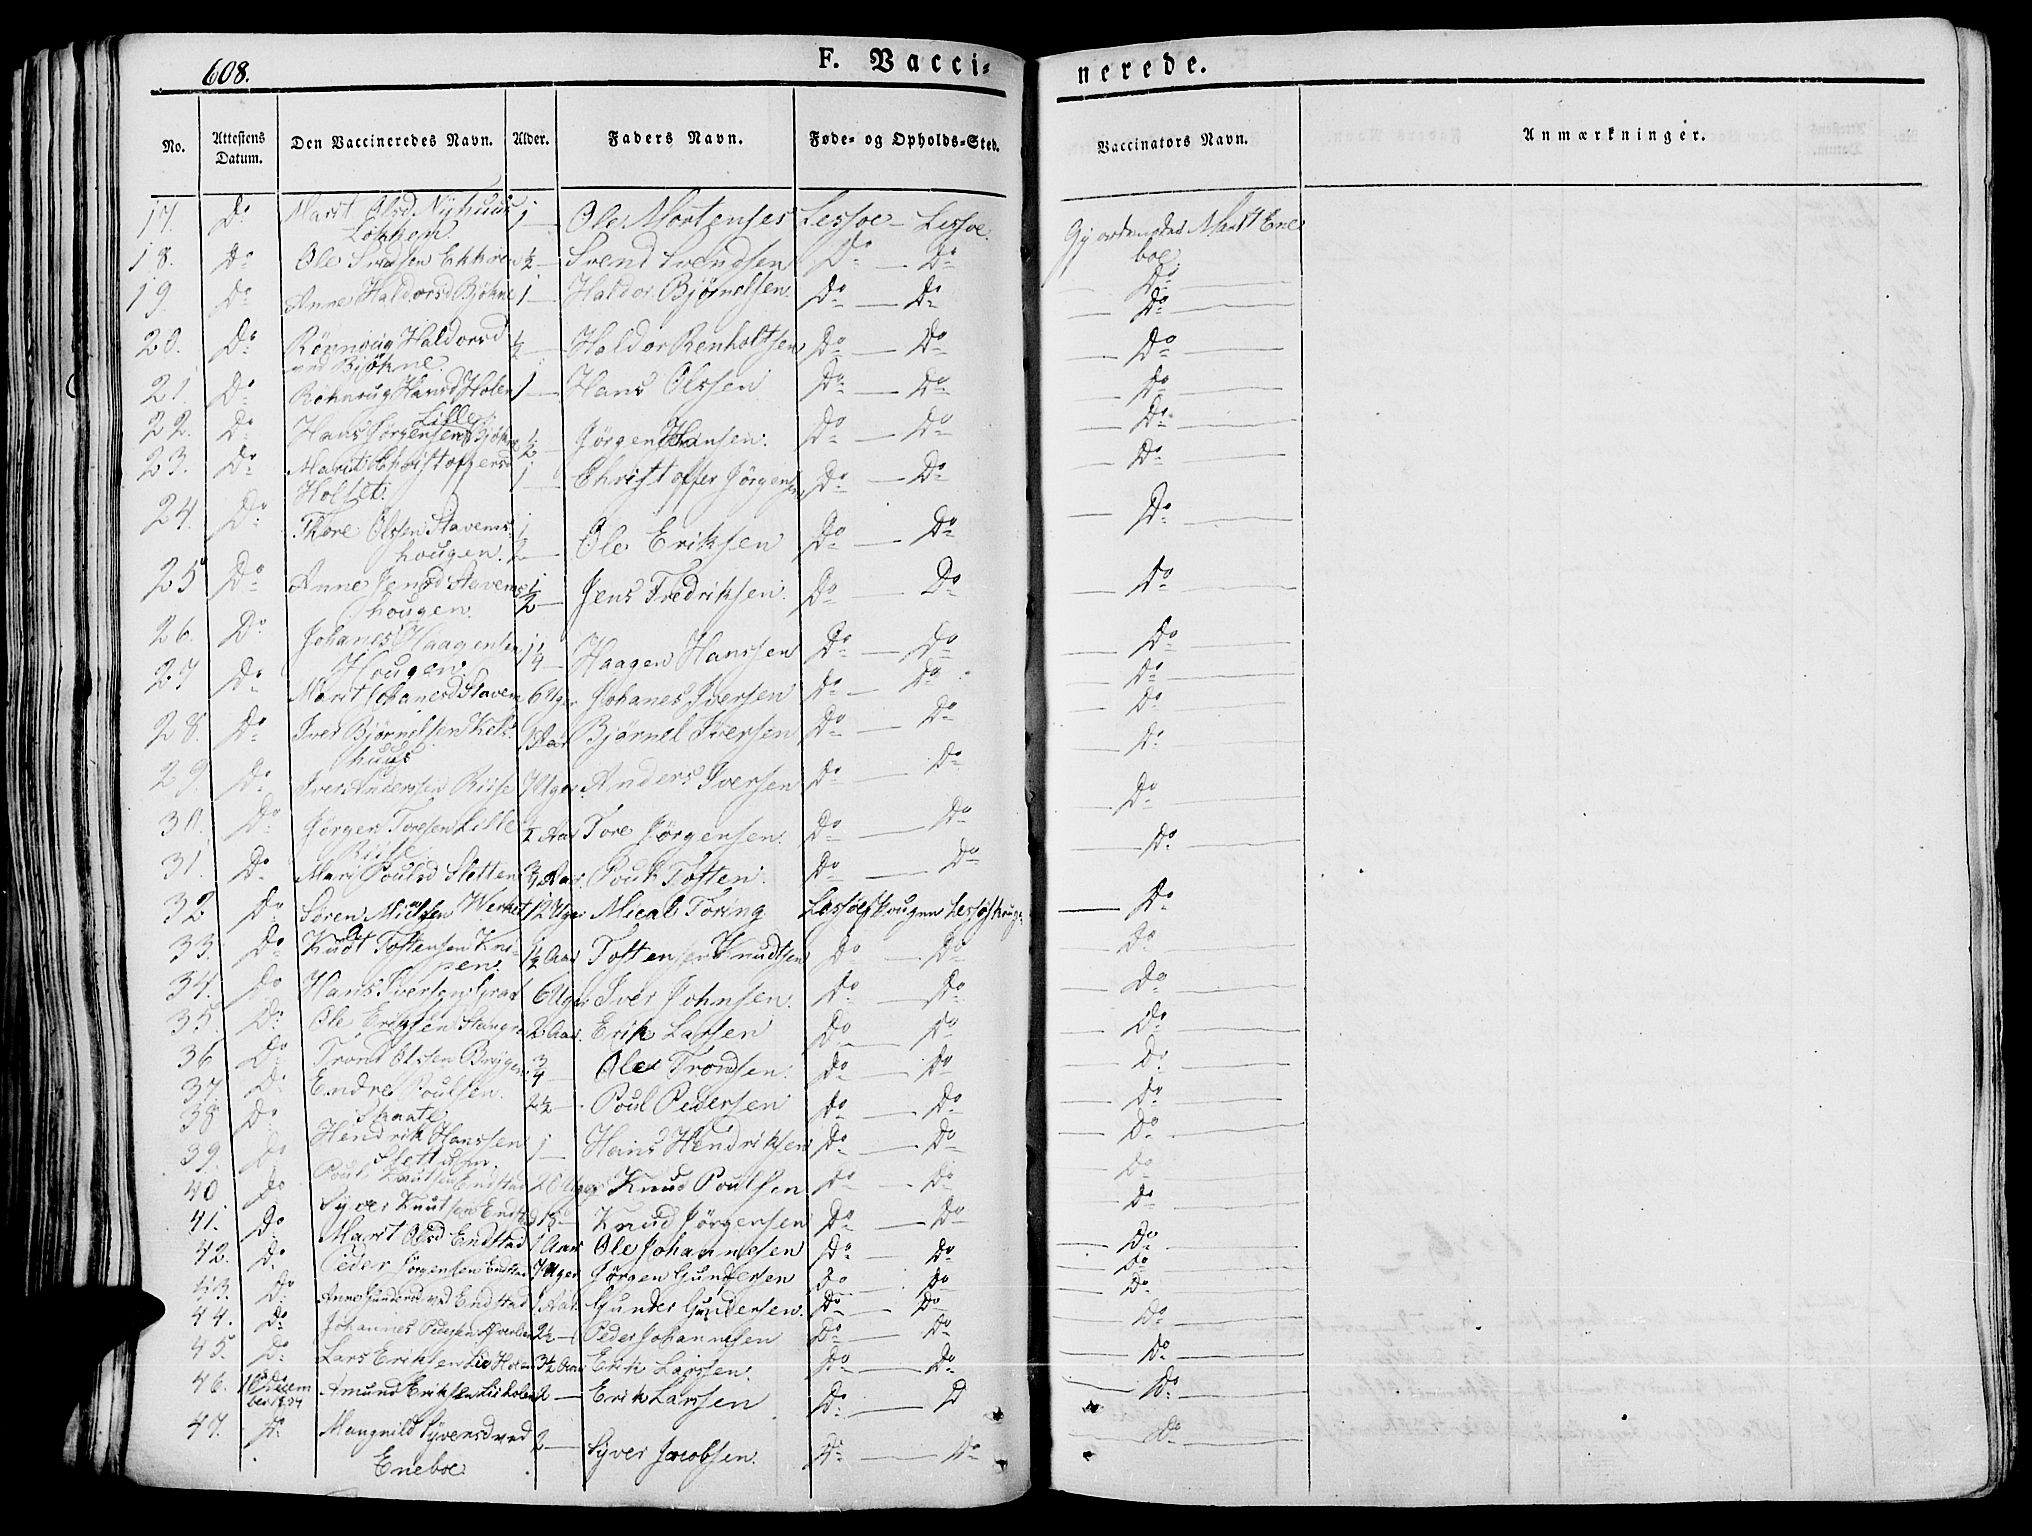 608.
F. Vacci-
nerede.
No.
Attestens Datum.
Den Vaccineredes Navn.
Alder.
Faders Navn.
Føde- og Opholds-Sted.
Vaccinators Navn.
Anmærkninger.
17. Do Marit Olsd Nyhuus 1 — Ole Mortensen Lessoe — Lessoe. Marit Ene
Løkken boe.
18. Do Ole Svendsen Ekkren ½ — Svend Svendsen Do — Do Do
19. Do Anne Haldorsd Bjøkne 1 — Haldor Bjørnelsen Do — Do Do
20. Do Rønnoug Haldorsd ½ — Haldor Renholtsen Do — Do Do
ved Bjøkne.
21. Do Røhnoug Hansd Holen 1 — Hans Olssen Do — Do Do
22. Do Hans Jørgensen Lille Bjøkne ½ Jørgen Hansen. Do — Do Do
23. Do Marit Christoffersd 1 — Christoffer Jørgensen Do — Do Do
Holset.
24. Do Thore Olssen Stavems ½ — Ole Eriksen Do — Do Do
hougen.
25 Do Anne Jensd Stavems ½ — Jens Fredriksen. Do — Do Do
hougen.
26. Do Johanes Haagensen 1¼ — Haagen Hanssen Do — Do Do
Hougen
27 Do Marit Johanesd Stavem 6 Uger Johanes Iversen Do — Do Do
28. Do Iver Bjørnelsen Kels 1 Aar Bjørnel Iversen Do — Do Do
huus
29. Do Iver Anderssen Riise 7 Uger Anders Iversen Do — Do Do
30. Do Jørgen Toresen Lille ½ Aar Tore Jørgensen. Do — Do Do
Riise
31. Do Mari Poulsd Sletten ¾ Aar. Poul Tosten. Do — Do Do
32 Do Søren Michelsen Werket 12 Uger Mical Toring Lessøeskougen Lessøskougen Do
33. Do Knudt Tostensen Kni 1½ Aar Tosten Knudtsen Do — Do Do
pen.
34. Do Hans Iversen 6 Uger Iver Johnsen. Do — Do Do
35. Do Ole Eriksen 2 Aar. Erik Larsen Do — Do Do
36 Do Trond Olssen Bryggen ¾ — Ole Trondsen. Do — Do Do
37. Do Endre Poulsen. 2½ — Poul Pedersen Do — Do Do
Skaate
38 Do Hendrik Hanssen 1 — Hans Hendriksen Do — Do Do
39. Do Poul Knutsen Endstad 20 Uger Knud Poulsen Do — Do Do
40 Do Syver Knutsen Endstad Knud Jørgensen Do — Do Do
41. Do Marit Olsd Endstad 1 Aar Ole Johannesen Do — Do Do
42. Do Peder Jørgensen Endstad 7 Uger Jørgen Gundersen Do — Do Do
43. Do Anne Gundersd ved Endstad 1 Aar. Gunder Gundersen. Do — Do Do
44. Do Johannes Pedersen 2½ — Peder Johannesen Do — Do Do
45. Do Lars Eriksen Lie Holen 3½ Aar Erik Larssen. Do — Do Do
46. Decem Amund Eriksen Lieholen 2 — Erik Larssen Do — D Do
ber
47. Do Mangnild Syversd ved 2 — Syver Jacobsen. Do — Do Do
Eneboe.